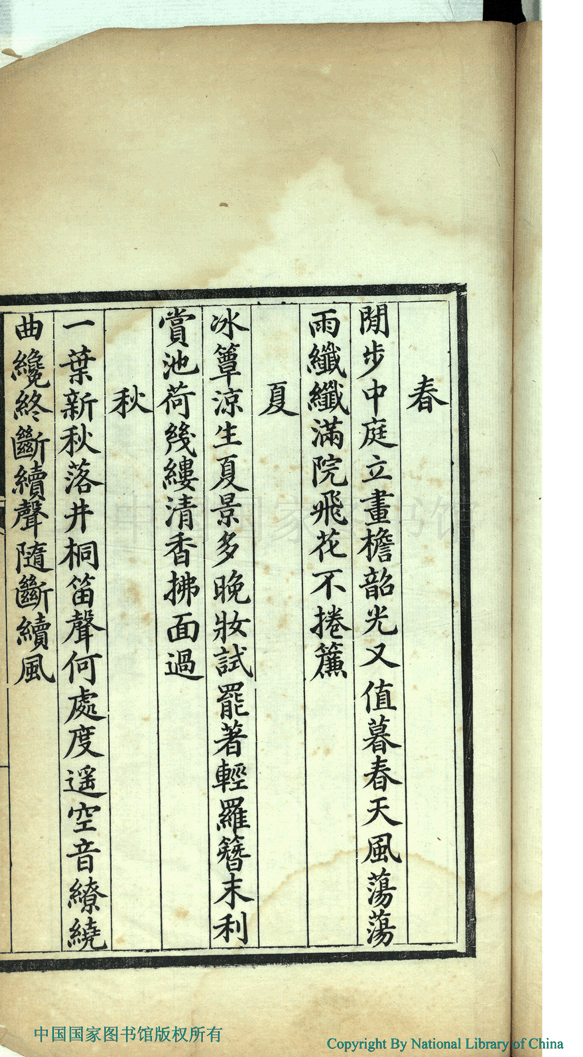 春
閒步中庭立畫檐韶光又值暮春天風蕩蕩
雨纖纖滿院飛花不捲簾
夏
冰簟涼生夏景多晚妝試罷著輕羅簪末利
賞池荷幾縷清香拂面過
秋
一葉新秋落井桐笛聲何處度遥空音繚繞
曲纔終斷續聲隨斷續風
中国国家图书馆
中国国家图书馆版权所有
Copyright By National Library of China